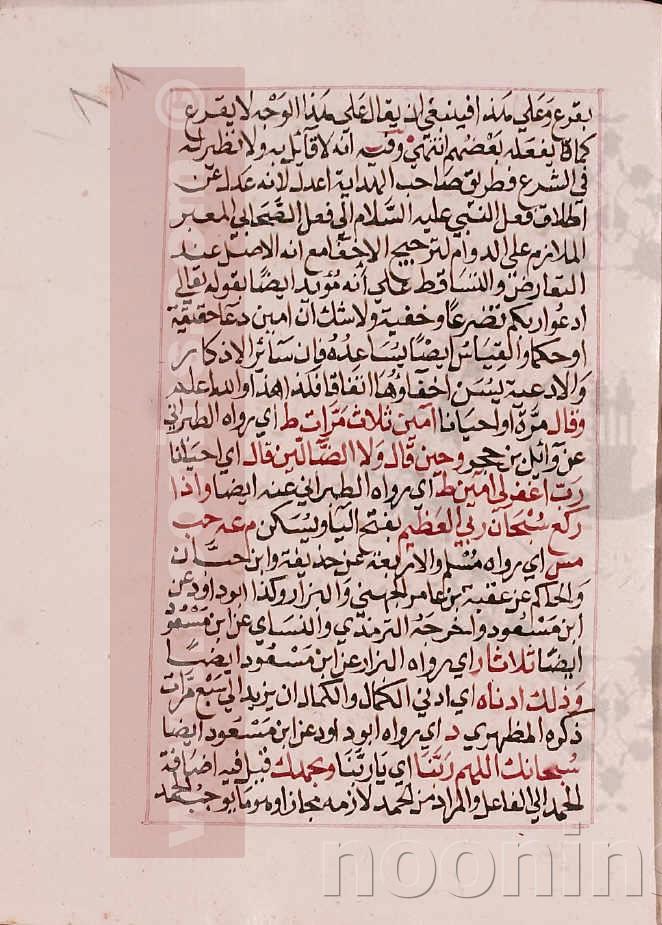 يقرع وعلى هذا فينبغي ان يقال على هذا الوجه لا يقرع
كما يفعله بعضهم انتهى وفيه انه لا قائل به ولا نظير له
في الشرع فطريق صاحب الهداية اعدل لانه عدل عن
اطلاق فعل النبي عليه السلام الى فعل الصحابي المعبر
الملازم على الدوام لترجيح الاخفا مع انه الاصل عند
التعارض والتساقط على انه مؤيد ايضا بقوله تعالى
ادعوا ربكم تضرعا وخفية ولا شك ان امين دعا حقيقة
او حكما والقياس ايضا يساعده فان سائر الاذكار
والادعية يسن اخفاؤها اتفاقا فكذا هذا والله اعلم
وقال مرة او احيانا امين ثلاث مرات ط اي رواه الطبراني
عن وائل بن حجر وحين قال ولا الضالين قال اي احيانا
رب اغفر لي امين ط اي رواه الطبراني عنه ايضا واذا
ركع سبحان ربي العظيم بفتح اليا ويسكن م عه حب
مس اي رواه مسلم والاربعة عن حذيفة وابن حبان
والحاكم عن عقبة بن عامر الجهني والبزار وكذا ابو داود عن
ابن مسعود واخرجه الترمذي والنساي عن ابن مسعود
ايضا ثلاثا ر اي رواه البزار عن ابن مسعود ايضا
وذلك ادناه اي ادنى الكمال والكمال ان يزيد الى سبع مرات
ذكره المظهري د اي رواه ابو داود عن ابن مسعود ايضا
سبحانك اللهم ربنا اي يا ربنا وبحمدك قيل فيه اضافة
الحمد الى الفاعل والمراد من الحمد لازمه مجازا وهو ما يوجب الحمد
noonin